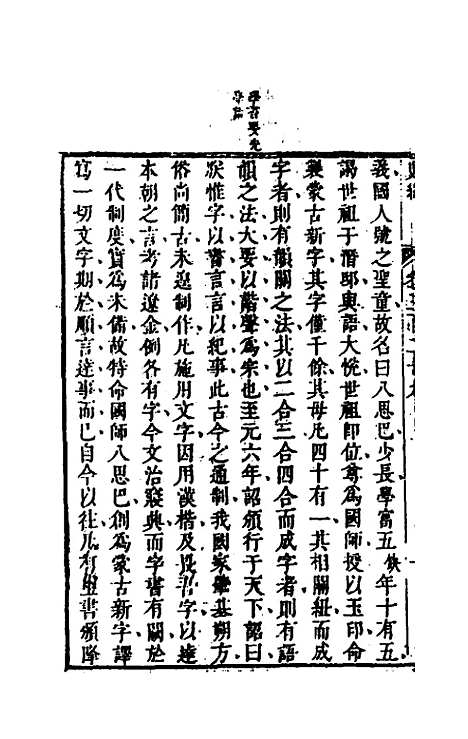 義國人號之聖童故名曰八思巴少長學富五佚年十有五
謁世祖于潛邸與語大悅世祖即位尊爲國師授以玉印命
製蒙古新字其字僅千餘其母凡四十有一其相關紐而成
字者則有韻關之法其以二合三合四合而成字者則有語
韻之法大要以諧聲爲宗也至元六年詔頒行于天下詔曰
朕惟字以書言言以紀事此古今之通制我國家肇基朔方
俗尚簡古未遑制作凡施用文字因用漢楷及畏吾字以達
本朝之言考諸遼金例各有字今文治寖興而字書有闕於
一代制度實爲未備故特命國師八思巴創爲蒙古新字譯
寫一切文字期於順言達事而已自今以往凡有璽書頒降